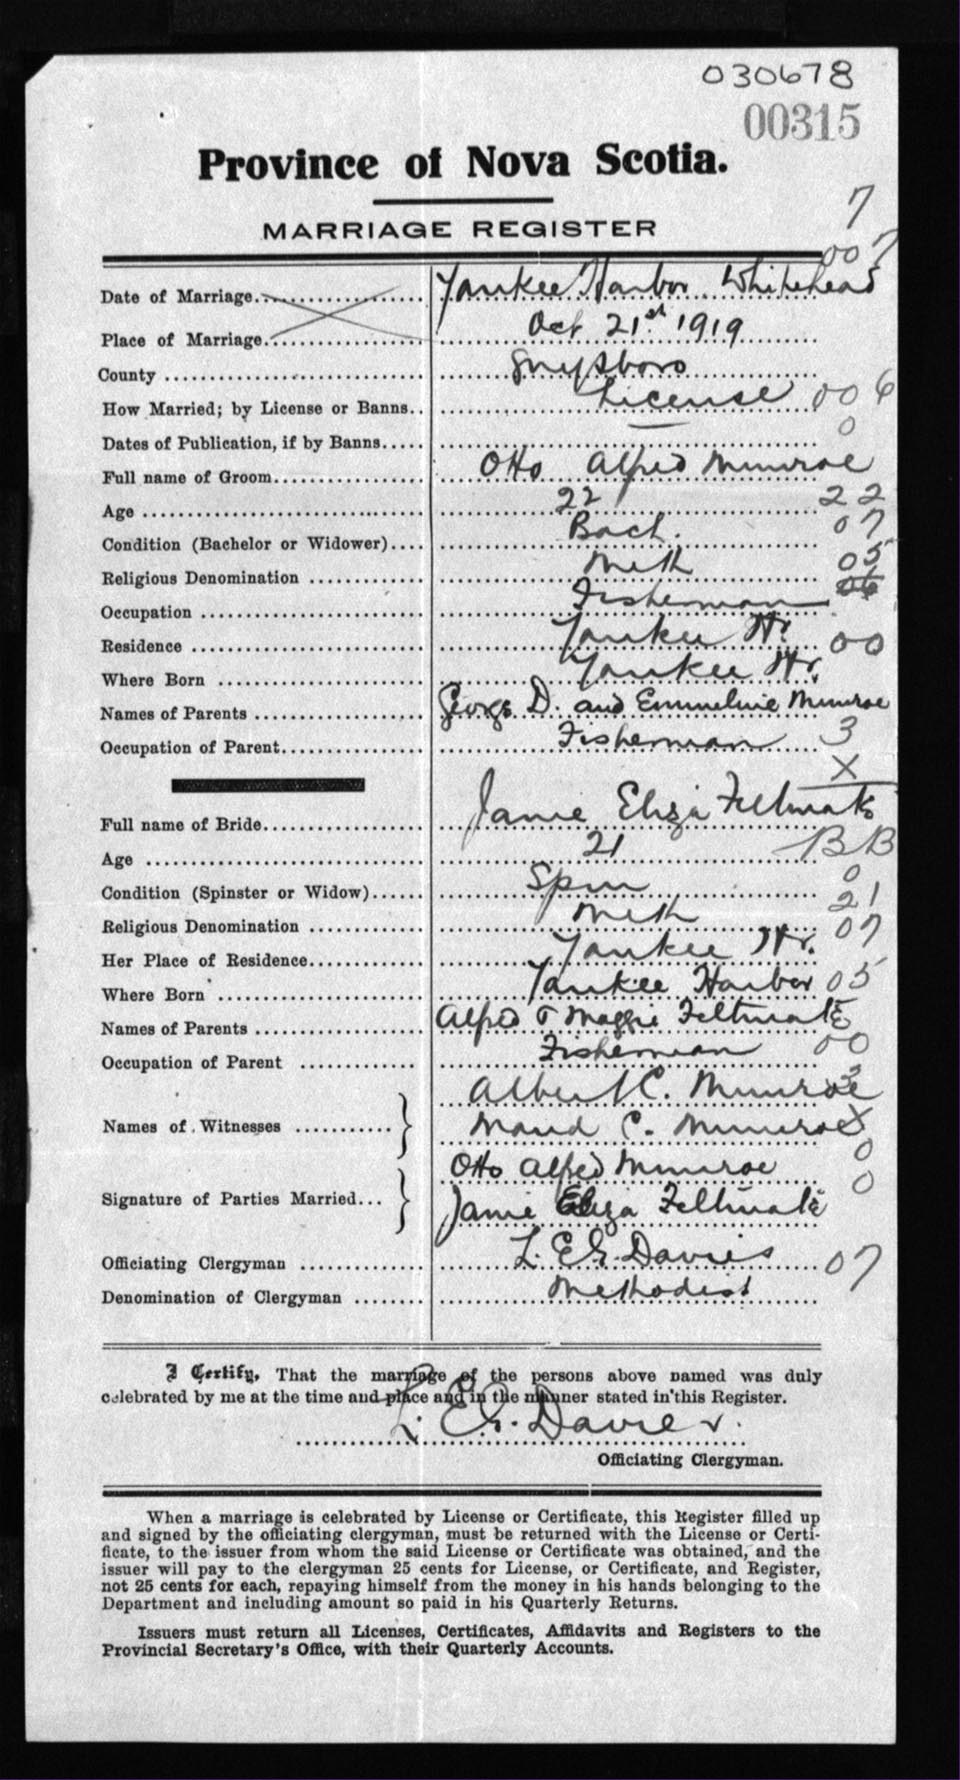 030678
00315
Province of Nova Scotia.
7
MARRIAGE REGISTER
007
Date of Marriage........................ Yankee Harbor Whitehead
Place of Marriage....................... Oct 21st 1919
County ........................ Guysboro
How Married; by License or Banns.. License 006
Dates of Publication, if by Banns..... — 0
Full name of Groom..................... Otto Alfred Munroe
Age ........................ 22 22
Condition (Bachelor or Widower).... Bach. 07
Religious Denomination ............. Meth 05
Occupation ........................ Fisherman 06
Residence ........................ Yankee Hr. 00
Where Born ........................ Yankee Hr.
Names of Parents .................... George D. and Emmeline Munroe
Occupation of Parent................. Fisherman 3
X
Full name of Bride.................... Janie Eliza Feltmate
Age ........................ 21 BB
Condition (Spinster or Widow)...... Spin 0
Religious Denomination ............. Meth 21
Her Place of Residence............. Yankee Hr. 07
Where Born ........................ Yankee Harbor 05
Names of Parents .................... Alfred & Maggie Feltmate
Occupation of Parent ............. Fisherman 00
Albert C. Munroe 3
Names of Witnesses ........... } Maud C. Munroe X
Otto Alfred Munroe 0
Signature of Parties Married... } Janie Eliza Feltmate 0
Officiating Clergyman ............. L. E. G. Davies 07
Denomination of Clergyman ........ Methodist
I Certify, That the marriage of the persons above named was duly
celebrated by me at the time and place and in the manner stated in this Register.
L. E. G. Davies.
Officiating Clergyman.
When a marriage is celebrated by License or Certificate, this Register filled up
and signed by the officiating clergyman, must be returned with the License or Certi-
ficate, to the issuer from whom the said License or Certificate was obtained, and the
issuer will pay to the clergyman 25 cents for License, or Certificate, and Register,
not 25 cents for each, repaying himself from the money in his hands belonging to the
Department and including amount so paid in his Quarterly Returns.
Issuers must return all Licenses, Certificates, Affidavits and Registers to the
Provincial Secretary's Office, with their Quarterly Accounts.